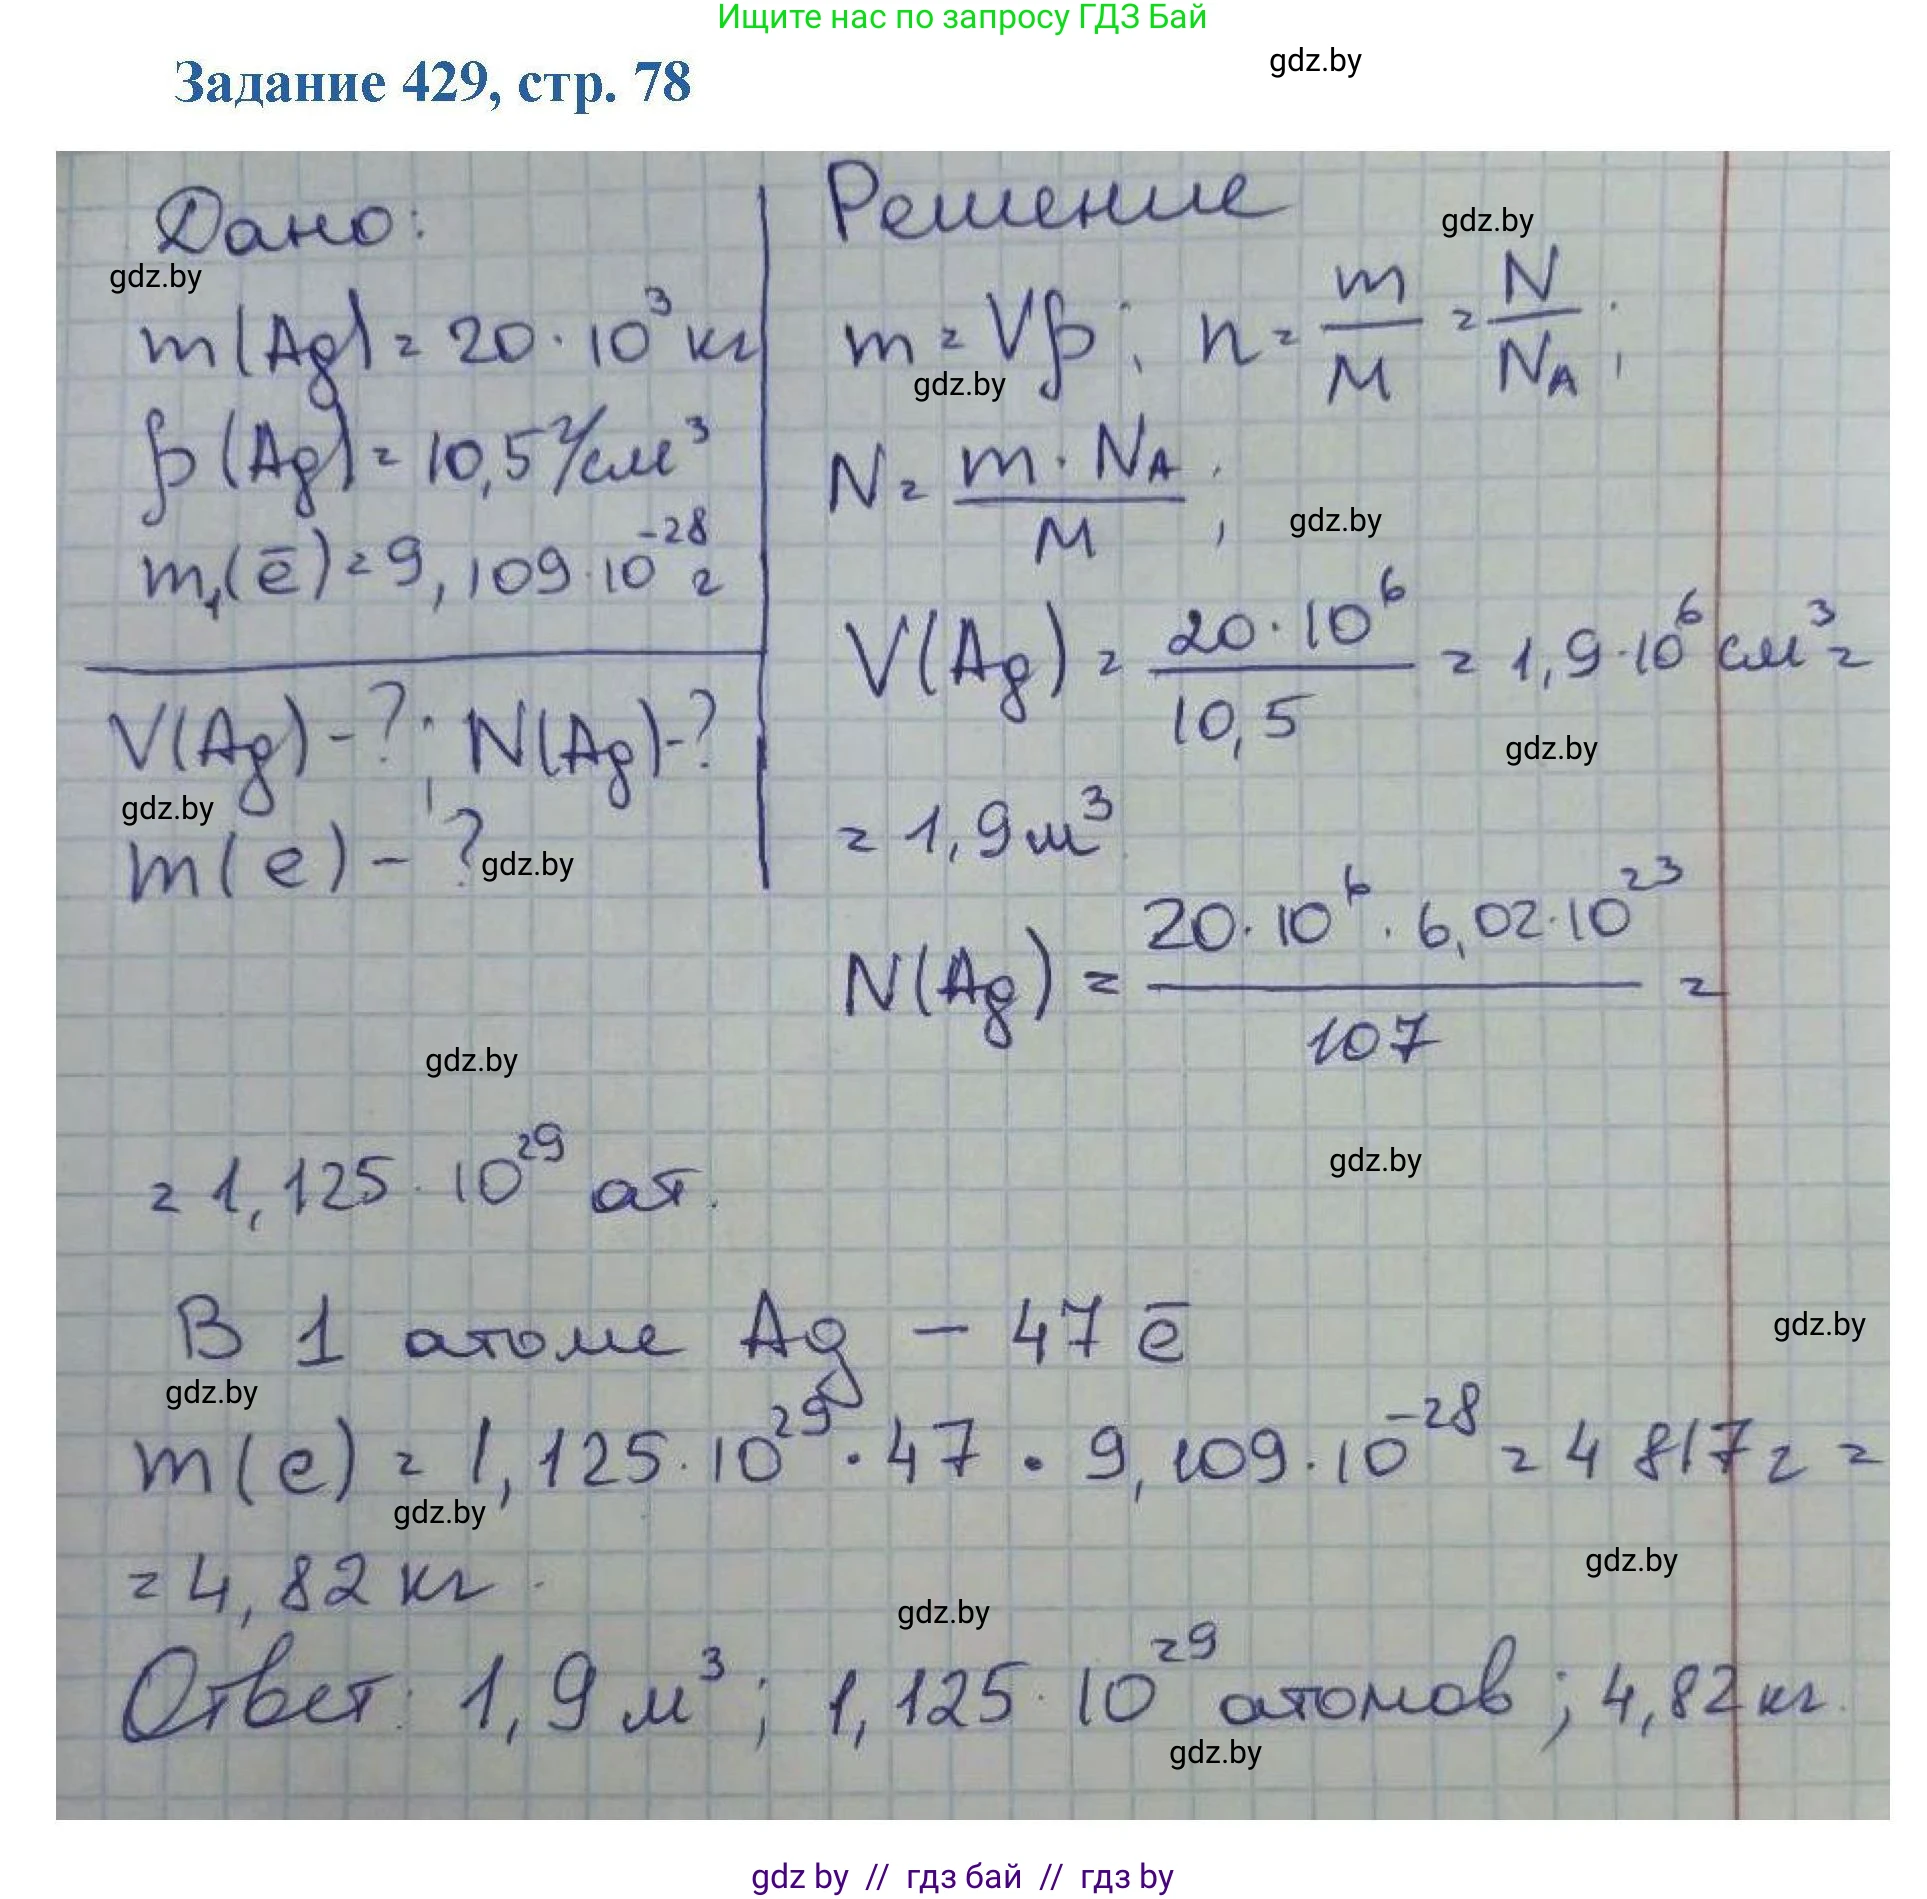 Ищите нас по запросу ГДЗ Бай
gdz.by
Задание 429, стр. 78
Дано:
gdz.by
m(Ag) = 20 · 10³ кг
ρ(Ag) = 10,5 г/см³
m₁(ē) = 9,109 · 10⁻²⁸ г
V(Ag) - ?; N(Ag) - ?
gdz.by
m(e) - ?
gdz.by
Решение
gdz.by
m = Vρ; n = m/M = N/N_A;
gdz.by
N = m · N_A / M;
gdz.by
V(Ag) = 20 · 10⁶ / 10,5 = 1,9 · 10⁶ см³ =
gdz.by
= 1,9 м³
N(Ag) = 20 · 10⁶ · 6,02 · 10²³ / 107 =
gdz.by
= 1,125 · 10²⁹ ат.
gdz.by
В 1 атоме Ag – 47 ē
gdz.by
gdz.by
m(e) = 1,125 · 10²⁹ · 47 · 9,109 · 10⁻²⁸ = 4 817 г =
gdz.by
= 4,82 кг.
gdz.by
gdz.by
Ответ: 1,9 м³; 1,125 · 10²⁹ атомов; 4,82 кг.
gdz.by
gdz by // гдз бай // гдз by